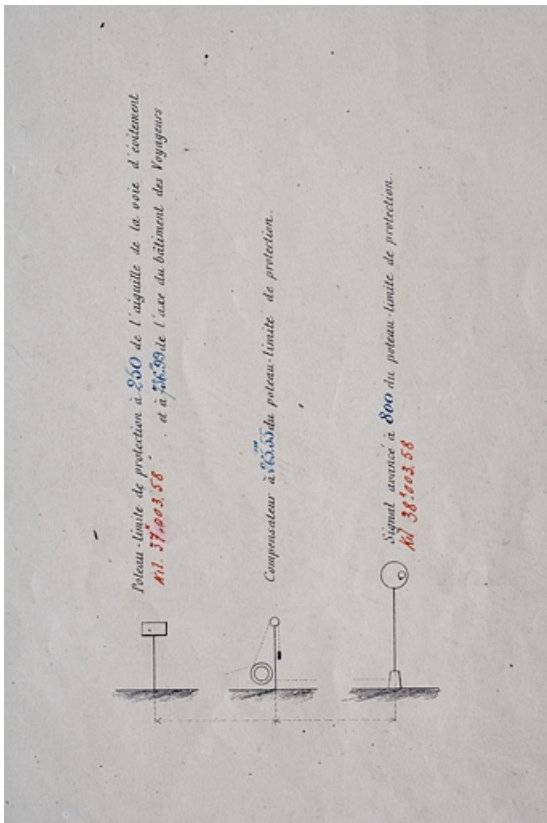 Poteau-limite de protection à 250 de l'aiguille de la voie d'évitement
et à de l'axe du bâtiment des Voyageurs
Kil. 37k003.58
Compensateur à du poteau-limite de protection.
Signal avancé à 800 du poteau-limite de protection.
Kil 38k003.58